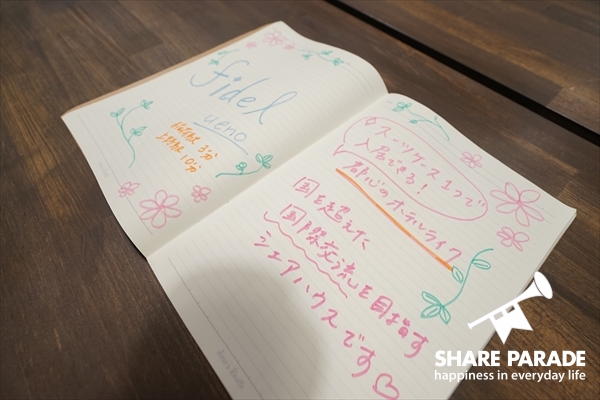 fidel
ueno
稲荷町 3分
上野 10分
スーツケース1つで
入居できる!
都心のホテルライク
国を超えた
国際交流を目指す
シェアハウスです♡
SHARE PARADE
happiness in everyday life